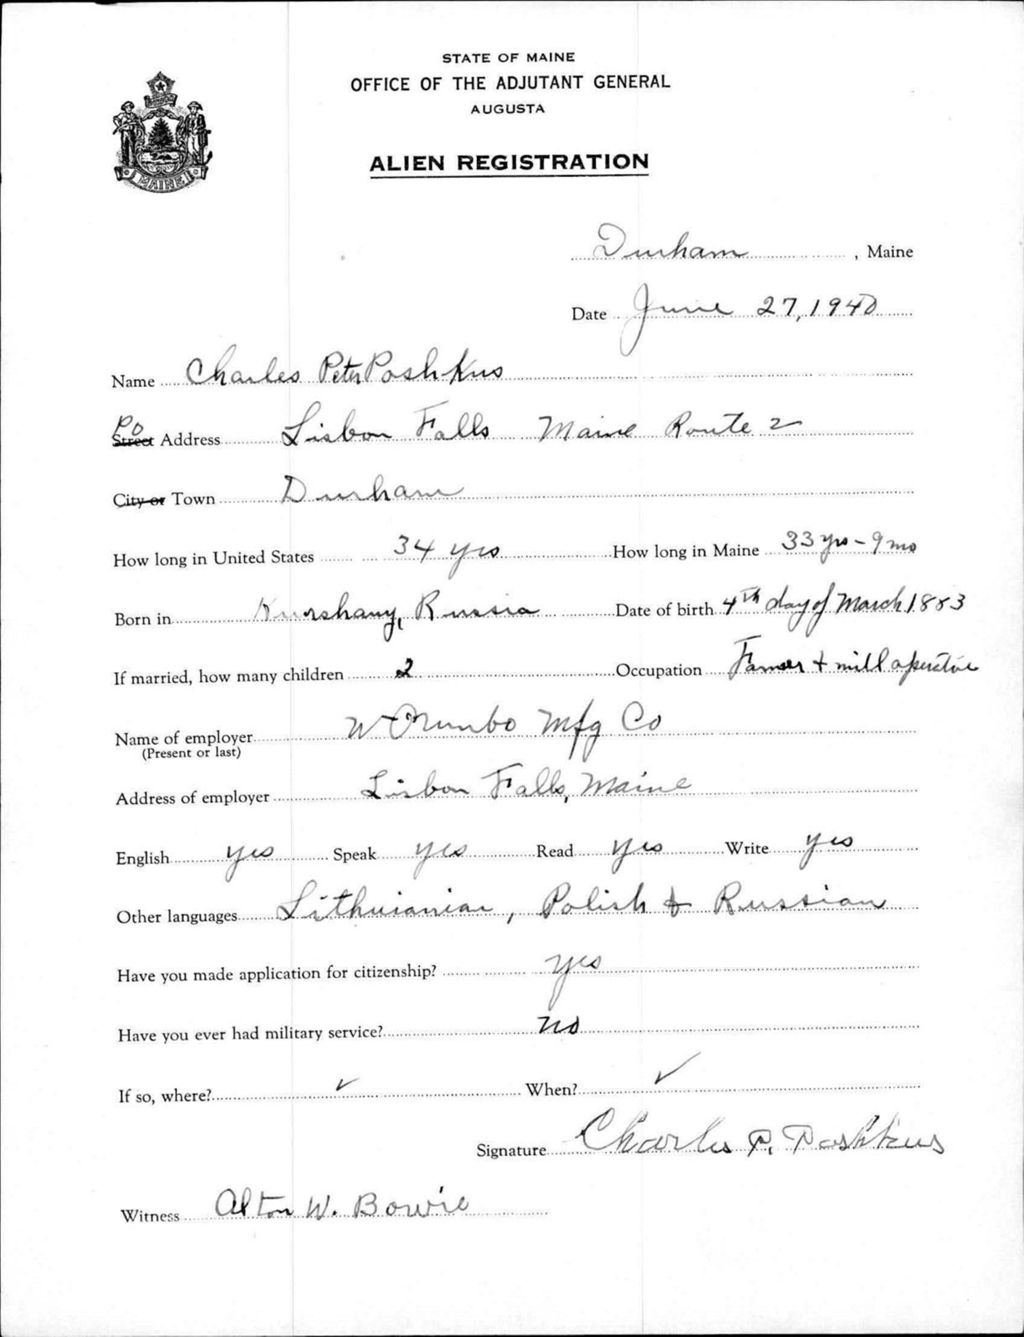 STATE OF MAINE
OFFICE OF THE ADJUTANT GENERAL
AUGUSTA
MAINE
ALIEN REGISTRATION
Durham, Maine
Date June 27, 1940
Name Charles Peter Poshkus
PO Street Address Lisbon Falls Maine Route 2
City or Town Durham
How long in United States 34 yrs How long in Maine 33 yrs - 9 mo
Born in Kurshany, Russia Date of birth 4th day of March 1883
If married, how many children 2 Occupation Farmer + mill operative
Name of employer Worumbo Mfg Co
(Present or last)
Address of employer Lisbon Falls, Maine
English yes Speak yes Read yes Write yes
Other languages Lithuianian, Polish & Russian
Have you made application for citizenship? yes
Have you ever had military service? no
If so, where? ✓ When? ✓
Signature Charles P. Poshkus
Witness Alton W. Bowie